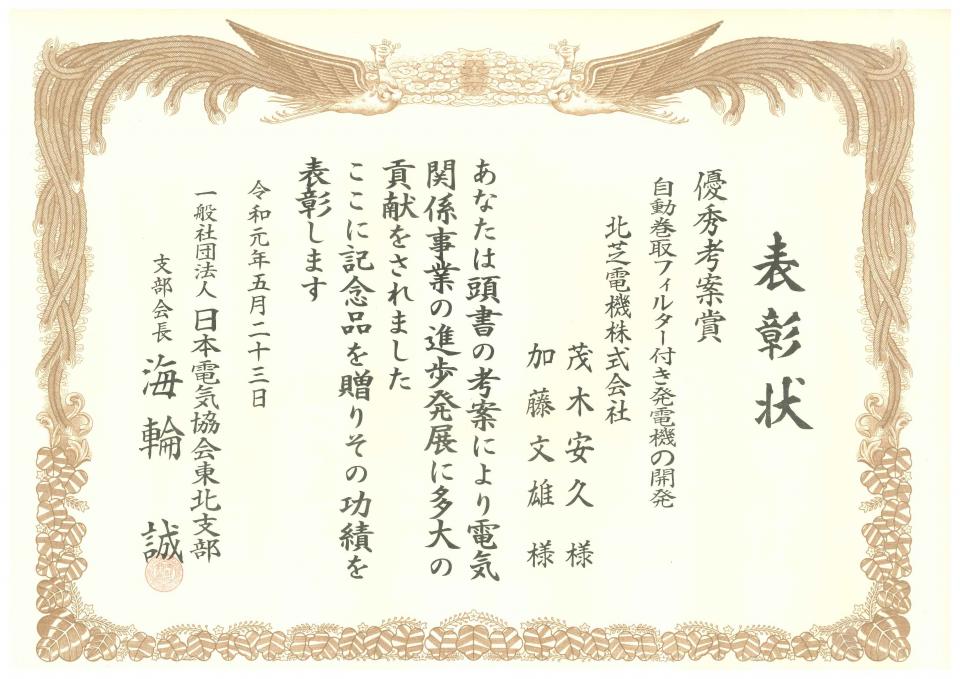 表彰状
優秀考案賞
自動巻取フィルター付き発電機の開発
北芝電機株式会社
茂木安久 様
加藤文雄 様
あなたは頭書の考案により電気
関係事業の進歩発展に多大の
貢献をされました
ここに記念品を贈りその功績を
表彰します
令和元年五月二十三日
一般社団法人 日本電気協会東北支部
支部会長 海輪 誠